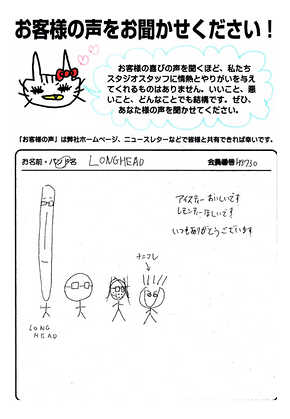 お客様の声をお聞かせください！
お客様の喜びの声を聞くほど、私たち
スタジオスタッフに情熱とやりがいを与え
てくれるものはありません。いいこと、悪
いこと、どんなことでも結構です。ぜひ、
あなた様の声をお聞かせください。
「お客様の声」は弊社ホームページ、ニュースレターなどで皆様と共有できれば幸いです。
お名前・バンド名 LONGHEAD 会員番号
アイスティーおいしいです
レモンティーほしいです
いつもありがとうございます
ナニコレ
LONG
HEAD